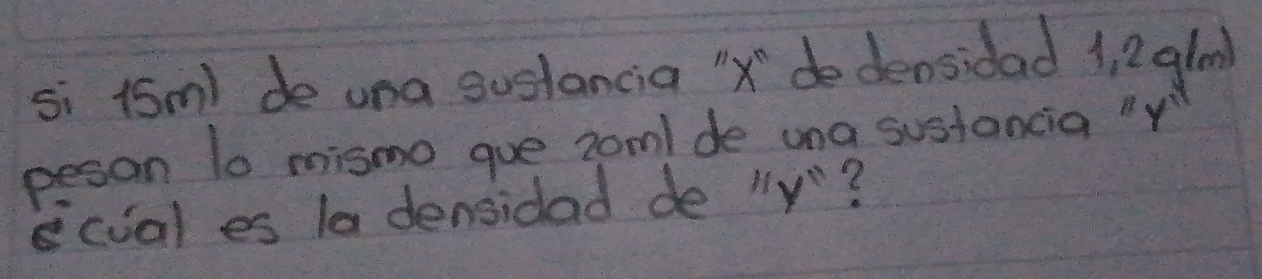 si 15ml de una sustancia "X" de densidad 1,2g/ml
pesan lo mismo que 20ml de una sustancia "Y"
¿cúal es la densidad de "y"?